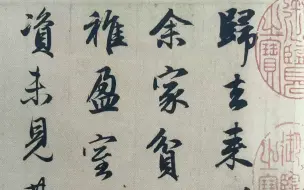 歸去来
余家貧
稚盈室
資未見